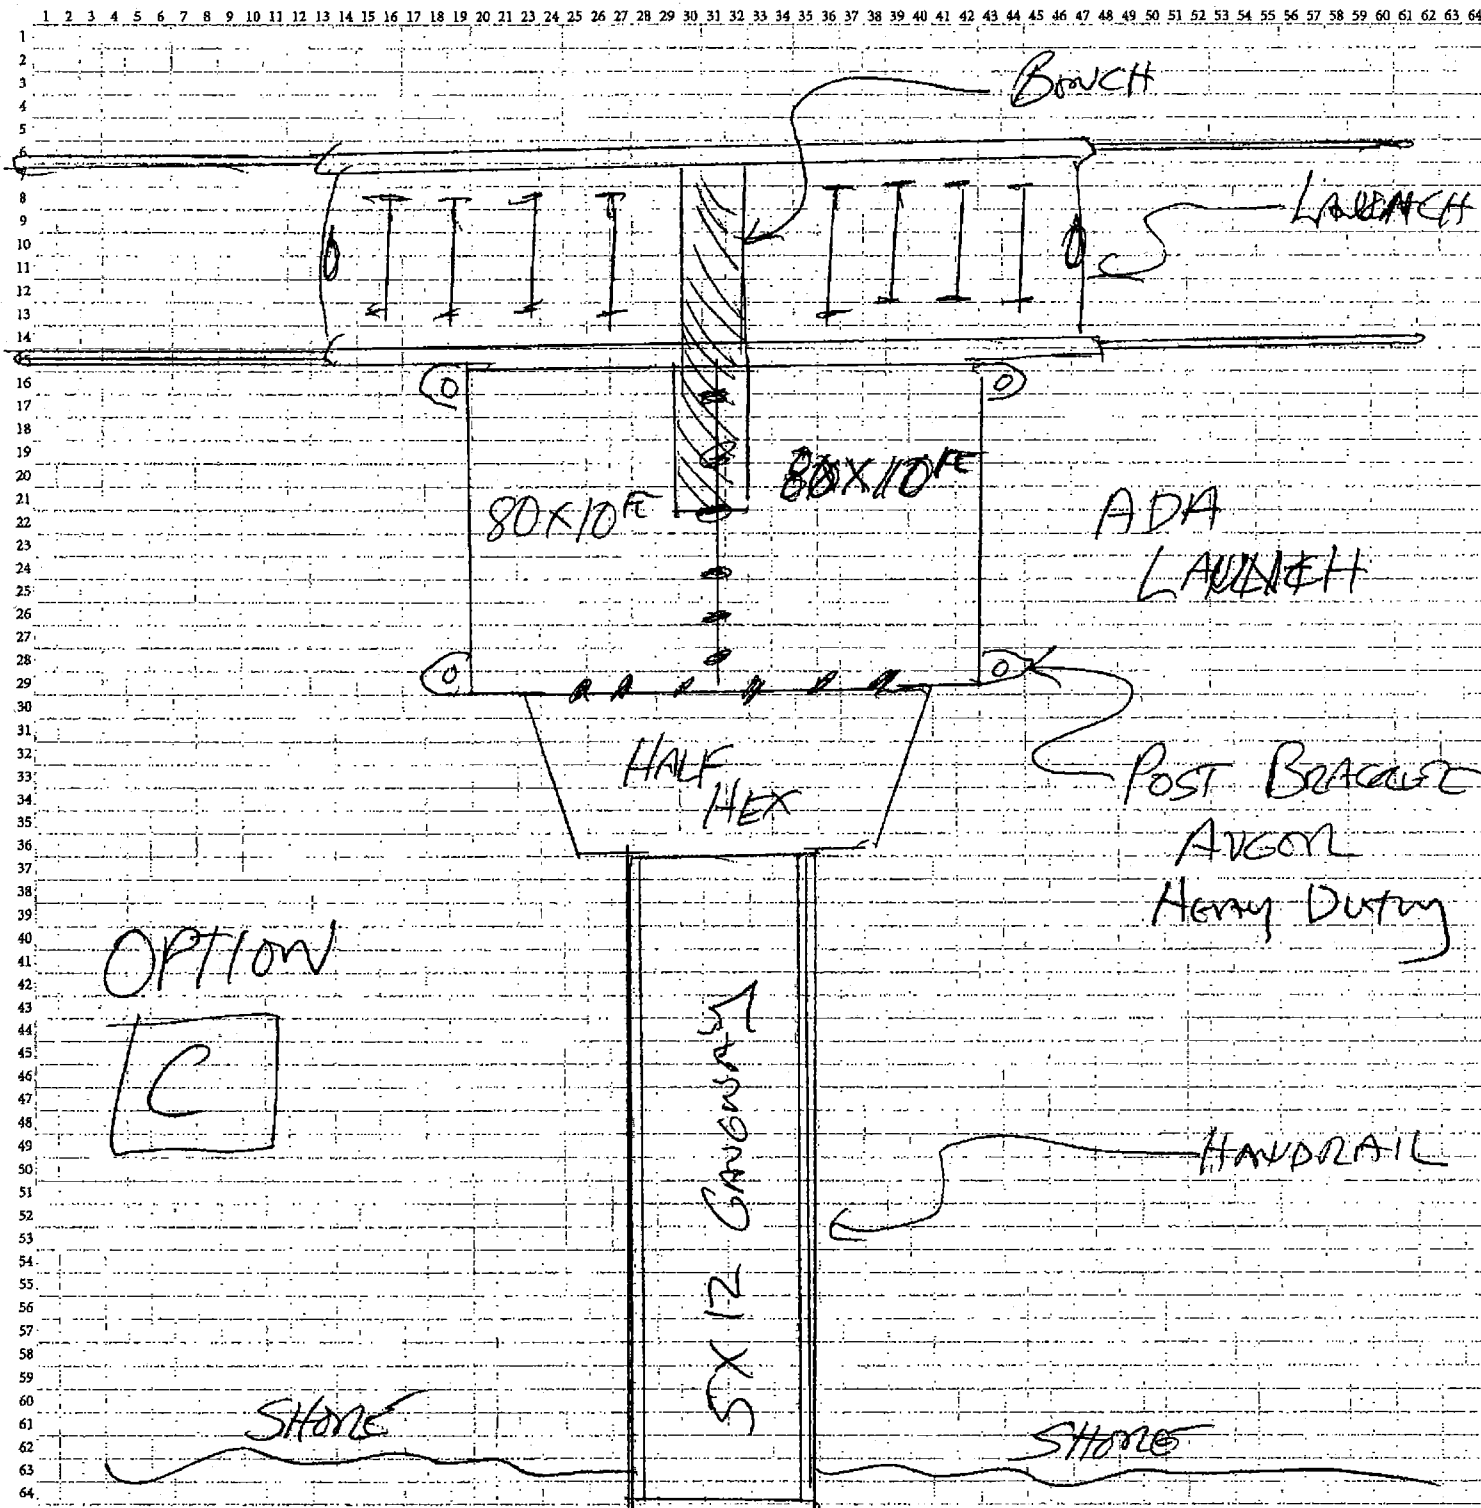 1 2 3 4 5 6 7 8 9 10 11 12 13 14 15 16 17 18 19 20 21 22 23 24 25 26 27 28 29 30 31 32 33 34 35 36 37 38 39 40 41 42 43 44 45 46 47 48 49 50 51 52 53 54 55 56 57 58 59 60 61 62 63 64
1
2
3
4
5
6
7
8
9
10
11
12
13
14
15
16
17
18
19
20
21
22
23
24
25
26
27
28
29
30
31
32
33
34
35
36
37
38
39
40
41
42
43
44
45
46
47
48
49
50
51
52
53
54
55
56
57
58
59
60
61
62
63
64
BENCH
LAUNCH
80X10 FE
80X10 FE
ADA
LAUNCH
HALF
HEX
POST BRACKET
HEAVY DUTY
OPTION
C
5X12 GANGWAY
HANDRAIL
SHORE
SHORE